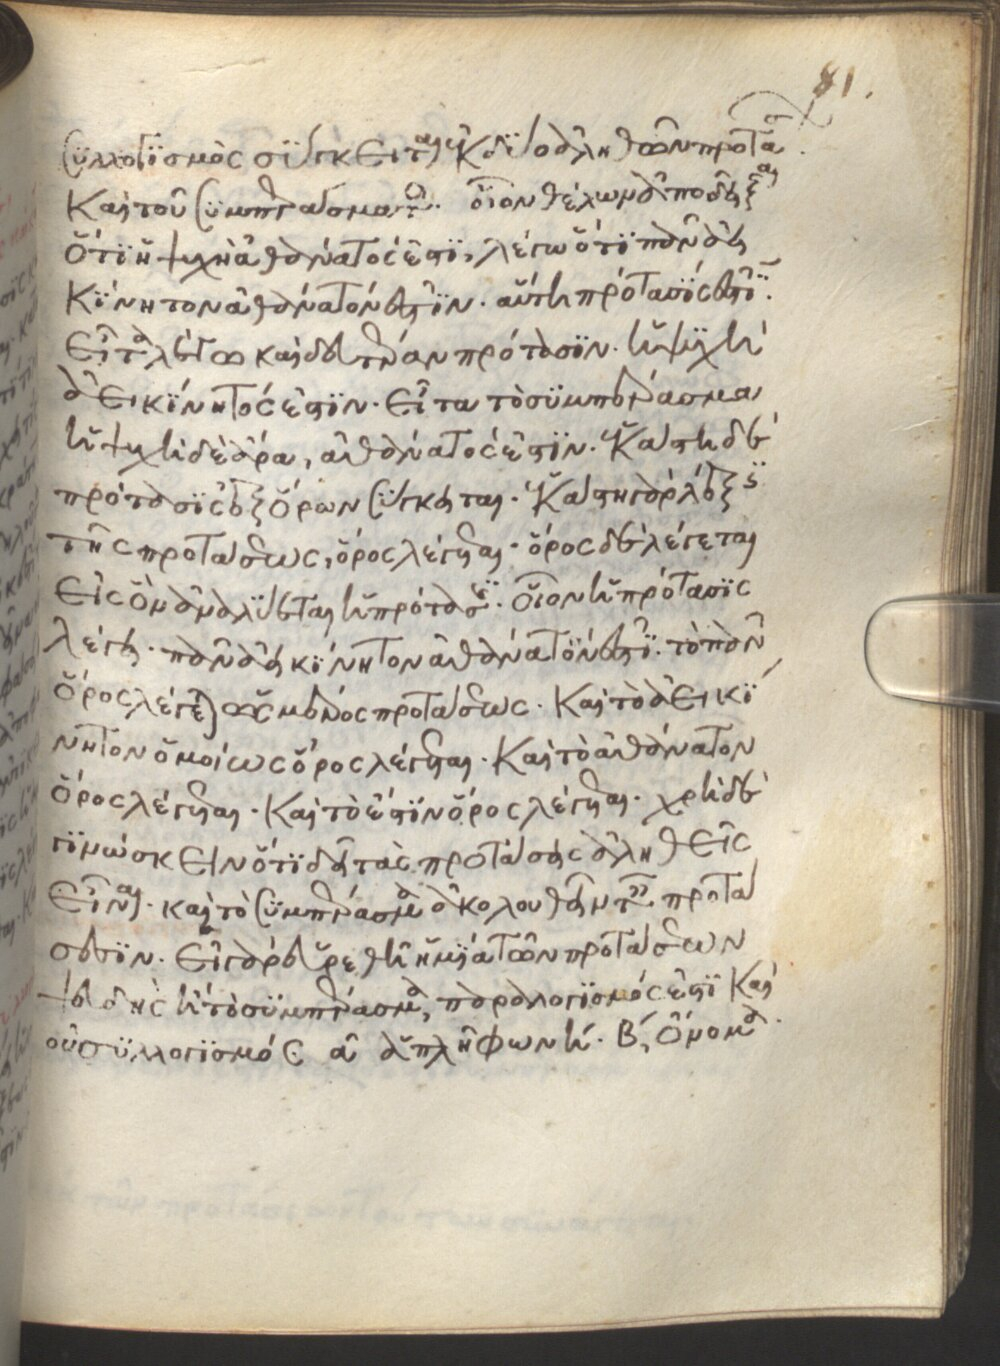 81.
συλλογϊσμὸς σϋγκειται ἐκ δύο ἀληθῶν προτά
καὶ τοῦ συμπεράσματο. οἷον θέλων ἀποδεῖξαι
ὅτϊ ἡ ψυχὴ ἀθάνατός ἐστϊ, λέγω ὅτϊ πᾶν ἀει
κϊνητον ἀθάνατόν ἐστϊν. αὕτη πρότασϊς ἐστϊ.
εἶτα λέγω καὶ δευτέραν πρότασϊν. ἡ ψϋχὴ
ἀεικϊνητός ἐστϊν. εἶτα τὸ σϋμπέρασμα
ἡ ψυχὴ δὲ ἄρα, ἀθάνατος ἐστϊν. κάστη δὲ
πρότασϊς ἐξ ὅρων σϋγκειται. κάστη γὰρ λέξϊς
τῆς προτάσεως, ὅρος λέγεται. ὅρος δὲ λέγεται
εἰς ὃν ἀναλϋεται ἡ πρότασϊς. οἷον ἡ πρότασϊς
λέγει. πᾶν ἀεικϊνητον ἀθάνατόν ἐστϊ. τὸ πᾶν
ὅρος λέγεται ὡς μέρος προτάσεως. καὶ τὸ ἀεικϊ
νητον ὁμοίως ὅρος λέγεται. καὶ τὸ ἀθάνατον
ὅρος λέγεται. καὶ τὸ ἐστϊν ὅρος λέγεται. χρὴ δὲ
γϊνώσκειν ὅτϊ δεῖ τὰς προτάσεις ἀληθεῖς
εἶναι. καὶ τὸ συμπέρασμα ἀκολουθεῖν τ προτά
σεσϊν. εἰ γὰρ εὑρεθῆ ἡ μϊα τῶν προτάσεων
ψευδὴς ἢ τὸ σϋμπέρασμα, παραλογϊσμός ἐστϊ καὶ
οὐ σϋλλογϊσμός α ἁπλῆ φωνή. β, ὄνομα.